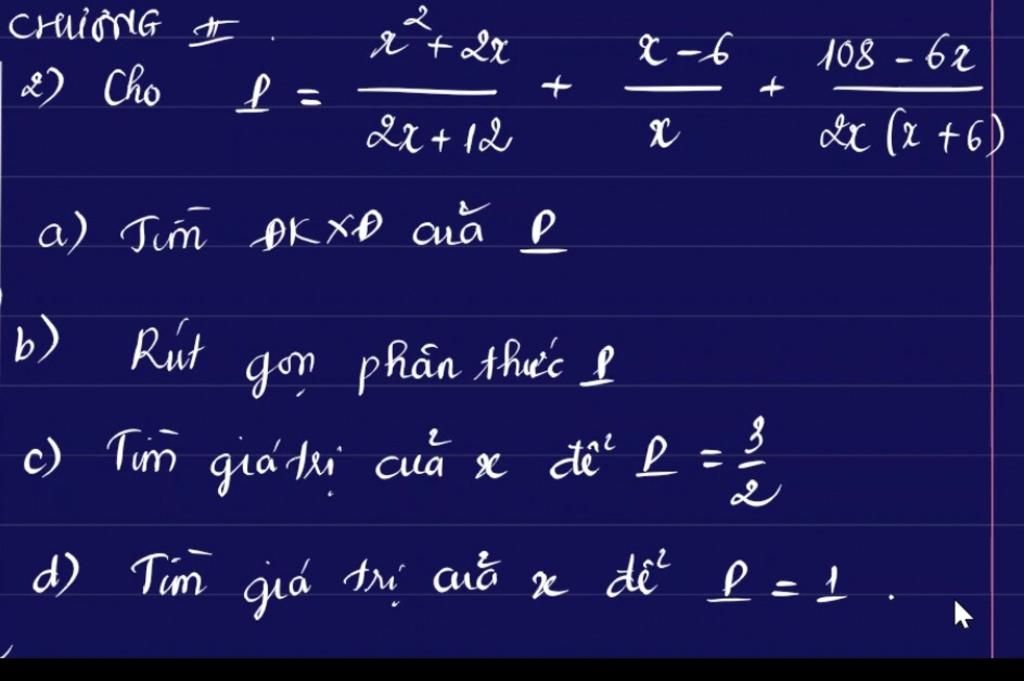 CHƯƠNG II.
2) Cho P = \frac{x^2 + 2x}{2x + 12} + \frac{x - 6}{x} + \frac{108 - 6x}{2x(x + 6)}
a) Tìm ĐKXĐ của P
b) Rút gọn phân thức P
c) Tìm giá trị của x để P = \frac{3}{2}
d) Tìm giá trị của x để P = 1.